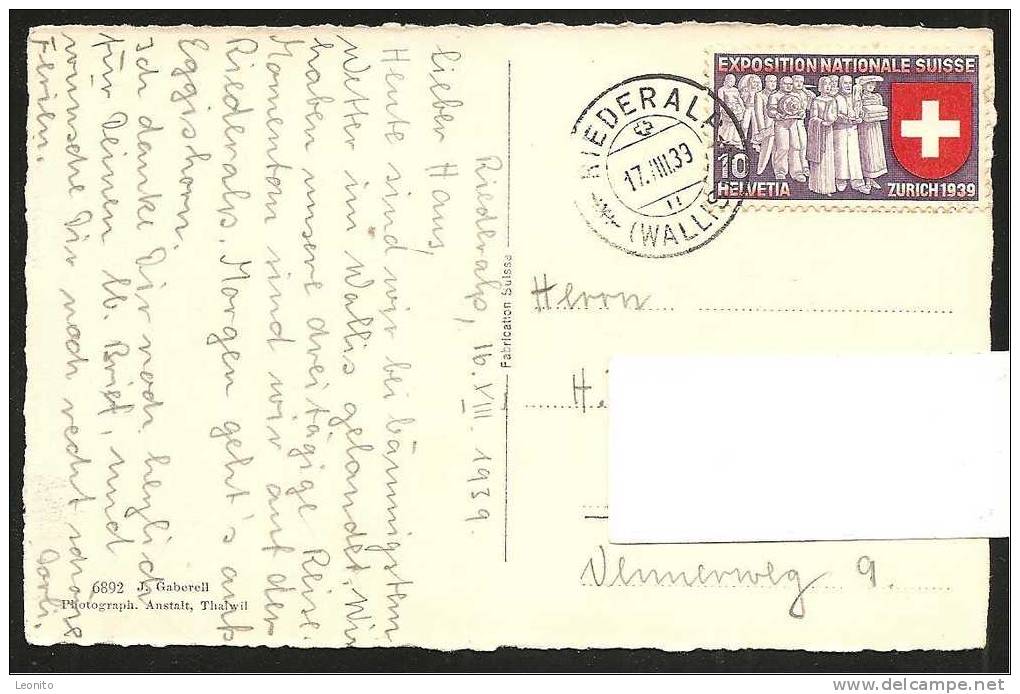 Riederalp, 16. VIII. 1939
Lieber Hans,
Heute sind wir bei bäumigstem
Wetter im Wallis gelandet. Wir
haben unsere dreitägige Reise.
Momentan sind wir auf der
Riederalp. Morgen geht's aufs
Eggishorn.
Ich danke Dir noch herzlich
für Deinen lb. Brief, und
wünsche Dir noch recht schöne
Ferien.
Dorli.
6892 J. Gaberell
Photograph. Anstalt, Thalwil
Fabrication Suisse
EXPOSITION NATIONALE SUISSE
10
HELVETIA
ZURICH 1939
RIEDERALP
17. VIII. 39
(WALLIS)
Herrn
H.
9.
Leonito
delcampe.net